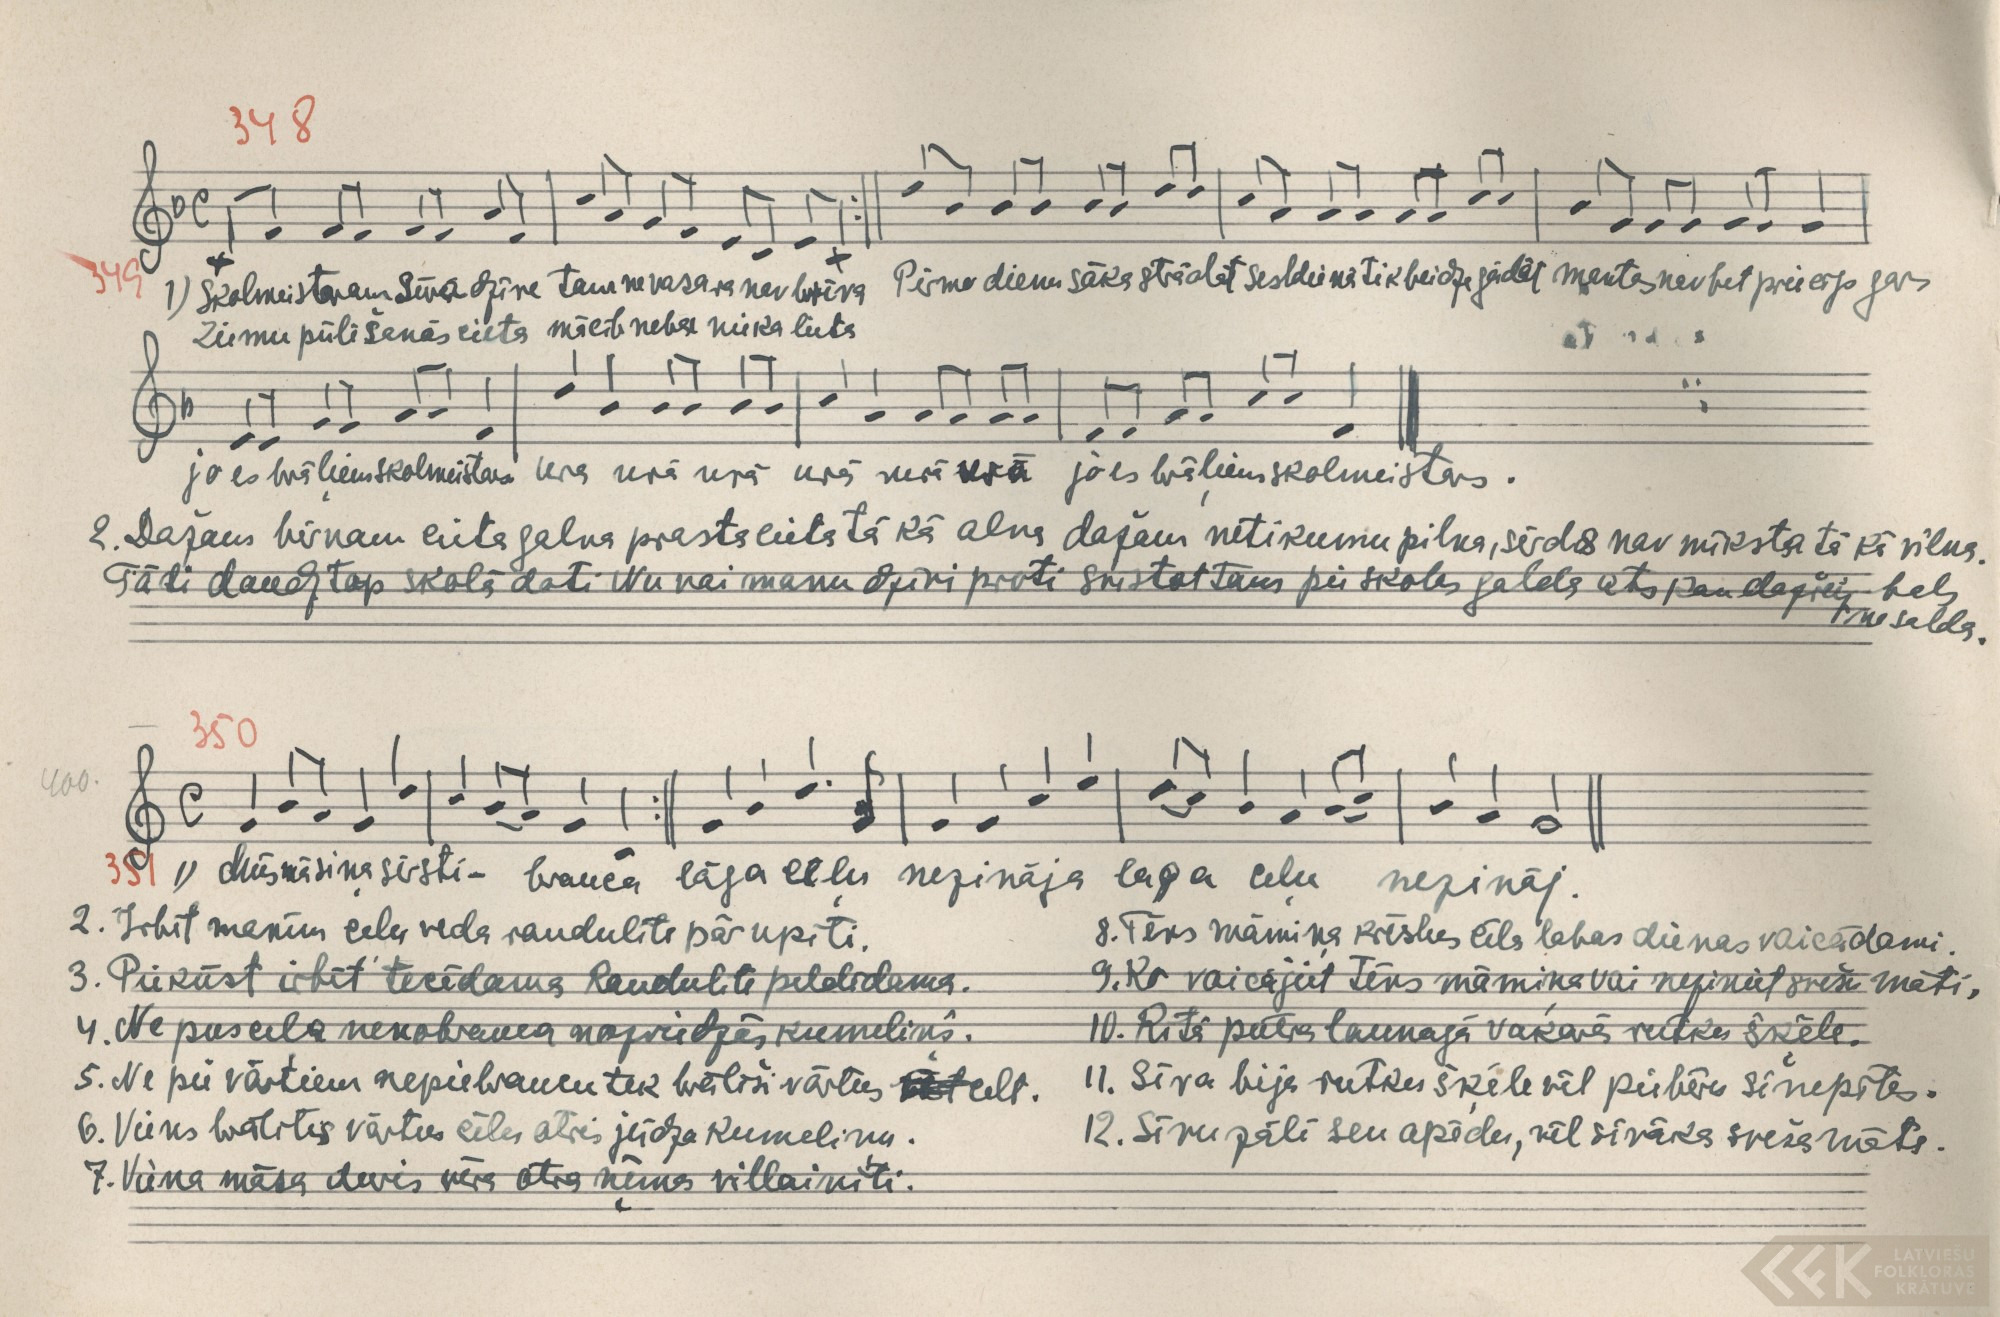 348
349
1) Skolmeistaram sīva dzīve tam ne vasara nav brīva Pirmo dienu sāka strādāt sestdienā tik beidze gādāt mantas nav bet priecīgs gars
Ziemu pūlišanās cieta mācib nebac nieka lieta
jo es brāļiem skolmeistars ura urā urā urā urā urā jo es brāļiem skolmeistars.
2. Dažam bērnam cieta galva prasta cieta tā kā alva dažam netikumu pilna, sirds nav mīksta tā kā vilna.
Tādi daudz top skolā doti Nu vai manu dzīvi proti svistot tam pie skolas galda ats kan dažreiz bals
nesalda.
350
400.
351 1) Mūs māsiņa sērsti- brauca lāga ceļu nezināja laga ceļu nezināj.
2. Irbit manim ceļu veda raudulīte pār upīti.
3. Piekūst irbit' tecēdama Raudulīte peldēdama.
4. Ne pusceļa nenobrauca nozviedzās kumeliņš.
5. Ne pie vārtiem nepiebraucu tek brālīši vārtus celt.
6. Viens brālītis vārtus cēla otris jūdza kumeliņu.
7. Viena māsa devis vēra otra ņēma villainīti.
8. Tēvs māmiņa krēslus cēla labas dienas vaicādami.
9. Ko vaicājiet Tēvs māmiņa vai neziniet svešu māti.
10. Rītā putra launagā vakarā rutku šķēle.
11. Sīva bija rutku šķēle vēl piebēra sīnepītes.
12. Sīvu zāli sen apēdu, vēl sīvāka sveša māte.
LATVIEŠU
FOLKLORAS
KRĀTUVE